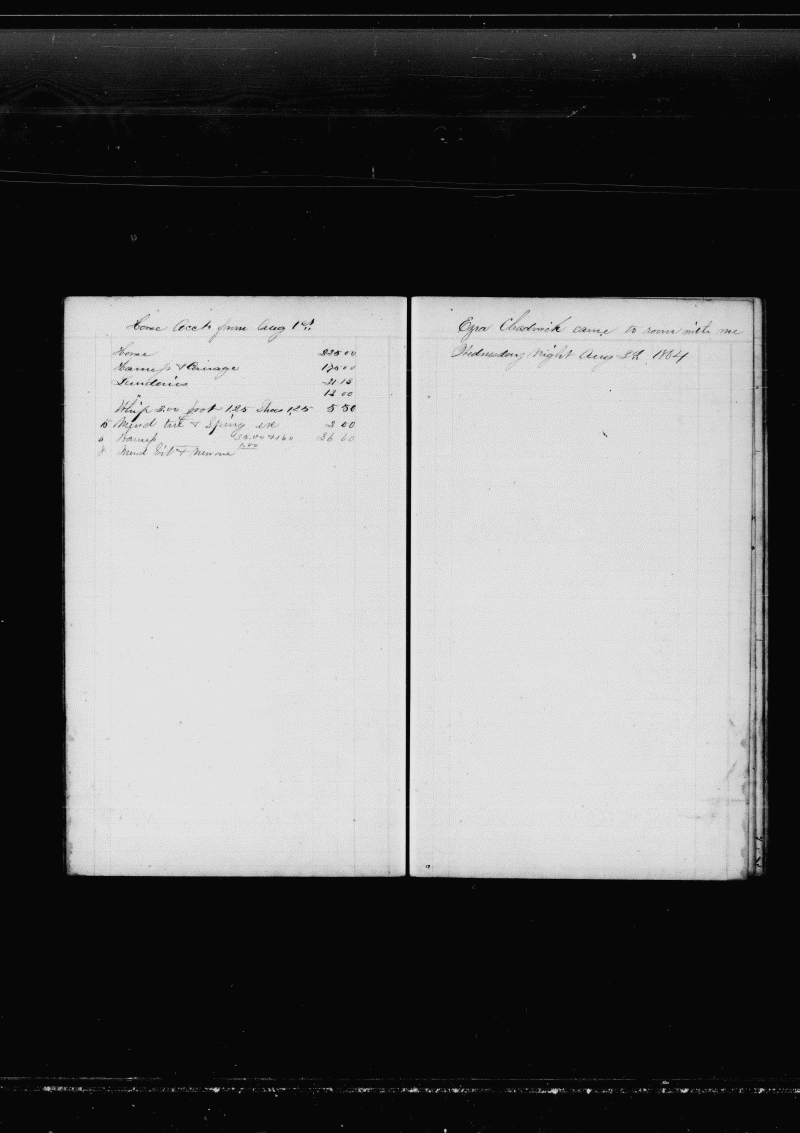 Horse Acct from Aug 1st
Horse 225 00
Harness & Carriage 175 00
Sunderies 21 15
" 12 00
Whip 2.00 foot 1.25 Shoes 1.25 5 50
15 Mend tire & Spring ex 2 00
Harness 35.00 & 1.60 36 60
8 Mend & 1.00
Ezra Chadwick came to room with me
Wednesday Night Aug 2d, 1864